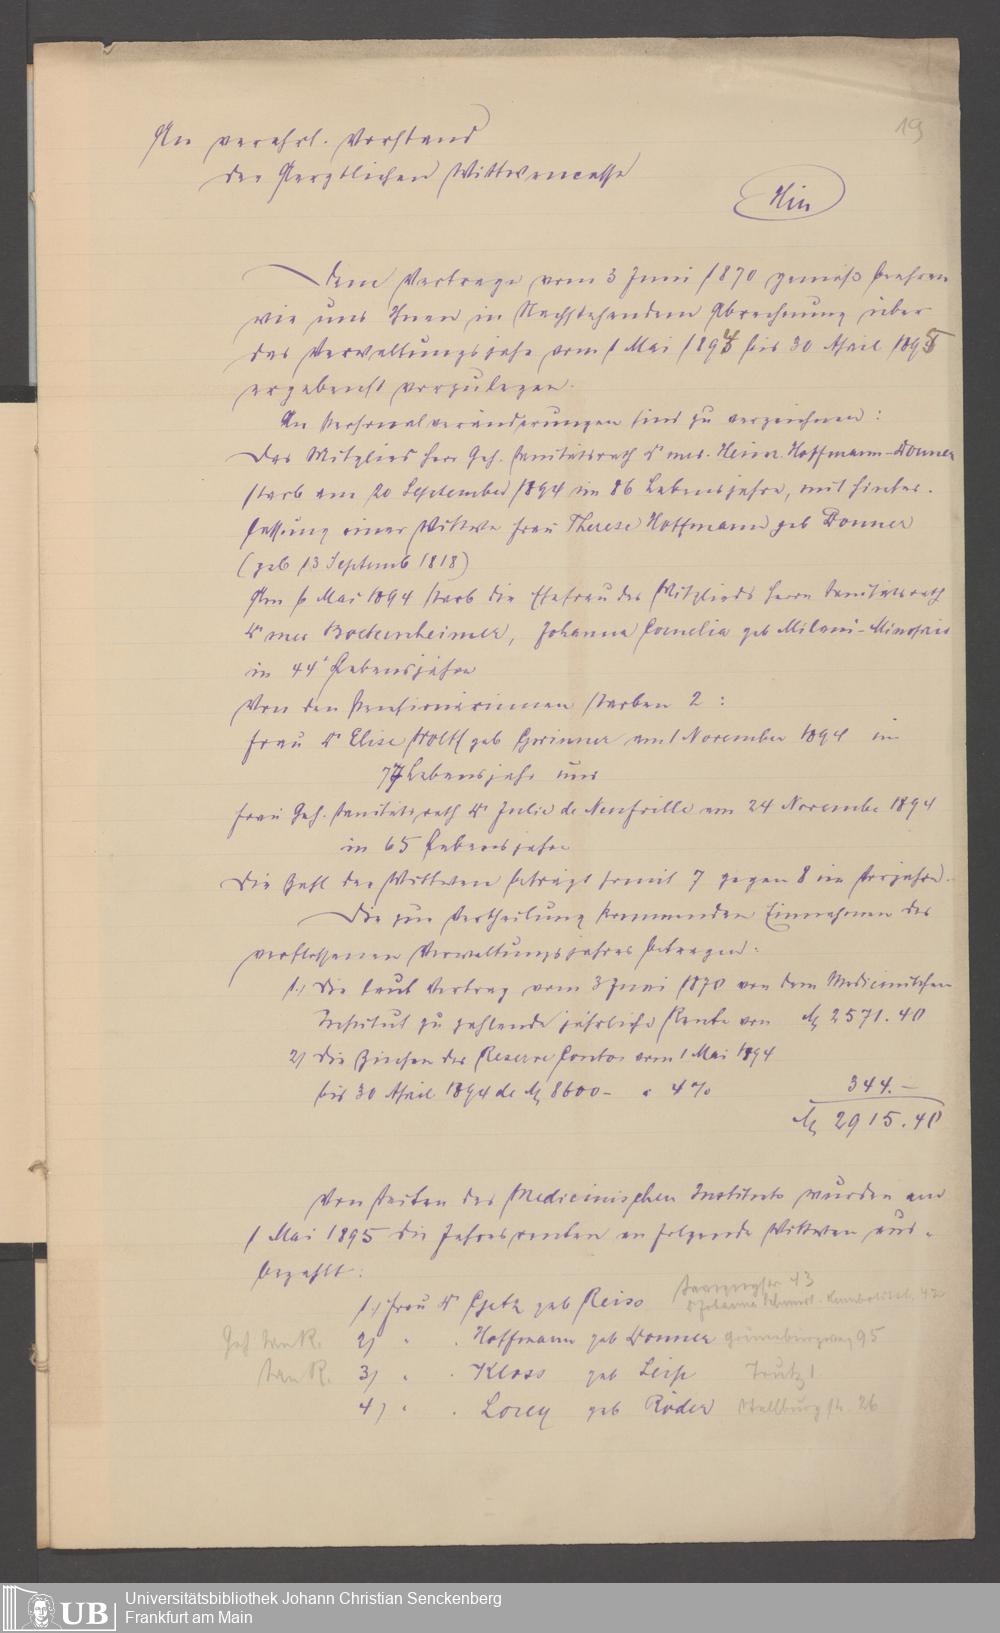 19
An verehrl. Vorstand
der Aerztlichen Wittwencasse
Hier
Dem Vertrage vom 3 Juni 1870 gemäß beehren
wir uns Ihnen in Nachstehendem Abrechnung über
das Verwaltungsjahr vom 1 Mai 1894 bis 30 April 1895
ergebenst vorzulegen.
An Personalveränderungen sind zu verzeichnen:
Das Mitglied Herr Geh. Sanitätsrath Dr med. Heinr. Hoffmann-Donner
starb am 20 September 1894 im 86 Lebensjahre, mit Hinter-
lassung einer Wittwe Frau Therese Hoffmann geb Donner
(geb 13 Septemb 1818)
Am Mai 1894 starb die Ehefrau des Mitglieds Herrn Sanitätsrath
Dr med Bockenheimer, Johanna Cornelia geb Milani-Minoprio
in 44 Lebensjahre
Von den Pensionärinnen starben 2:
Frau Dr Elise geb Gwinner am 1 November 1894 im
77 Lebensjahr und
Frau Geh. Sanitätsrath Dr Julie de Neufville am 24 Novembe 1894
in 65 Lebensjahre
Die Zahl der Wittwen beträgt somit 7 gegen 8 im Vorjahre.
Die zur Vertheilung kommenden Einnahmen des
verflossenen Verwaltungsjahres betragen:
1.) Die laut Vertrag vom 3 Juni 1870 von dem Medicinischen
Institut zu zahlende jährliche Rente von M 2571.40
2) Die Zinsen des Reserve Contos vom 1 Mai 1894
bis 30 April 1894 de M 8600 – a 4 % 344.–
M 2915.40
Von Seiten des Medicinischen Instituts wurden am
1 Mai 1895 die Jahresrenten an folgende Wittwen aus-
bezahlt:
43
1.) Frau Dr geb Reiss Johanna Schmidt. Humboldtstr. 42
Geh San R. 2) " . Hoffmann geb Donner Grüneburgweg 95
San R. 3) " . Kloss geb Trutz 1
4) " . Lorey geb Röder Stallburgstr. 26
UB
Universitätsbibliothek Johann Christian Senckenberg
Frankfurt am Main